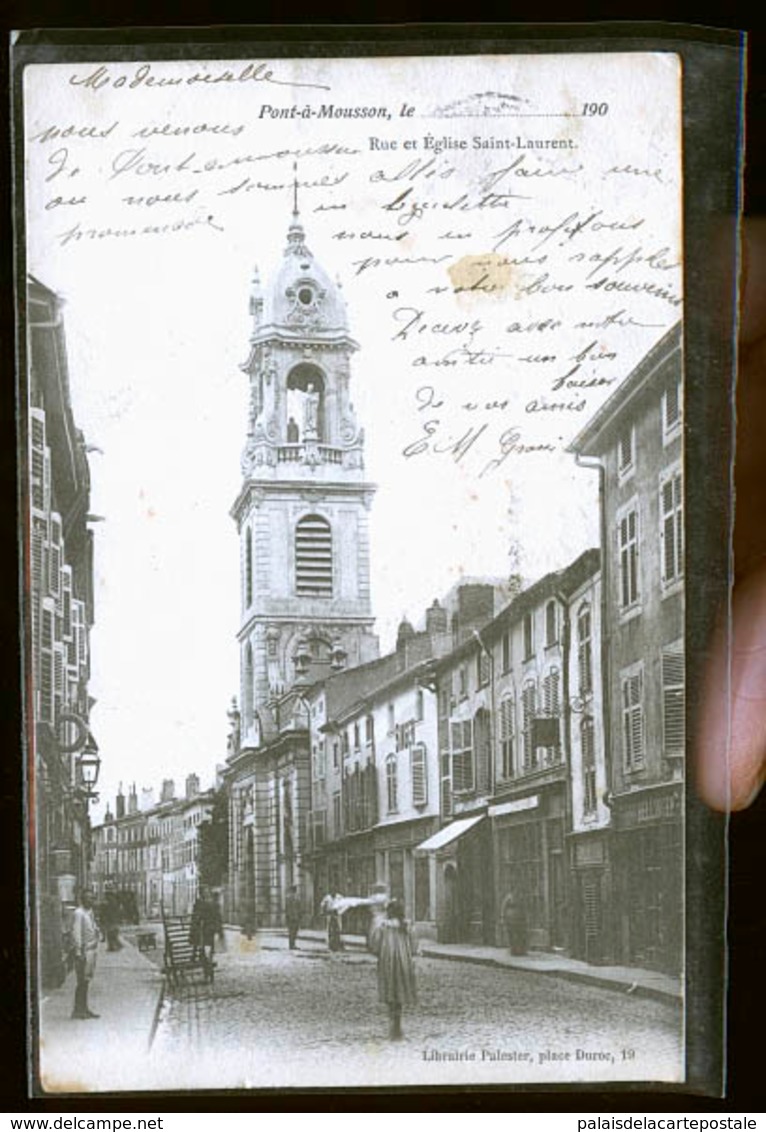 Mademoiselle
Pont-à-Mousson, le 190
Rue et Église Saint-Laurent.
nous venons
de Pont-a-mousson
ou nous sommes allés faire une
promenade en bicyclette
nous en profitons
pour nous rappeler
a votre bon souvenir
Recevez avec notre
amitié un bon
baiser
de vos amis
E M
Librairie Palester, place Duroc, 19
Delcampe.net
palaisdelacartepostale